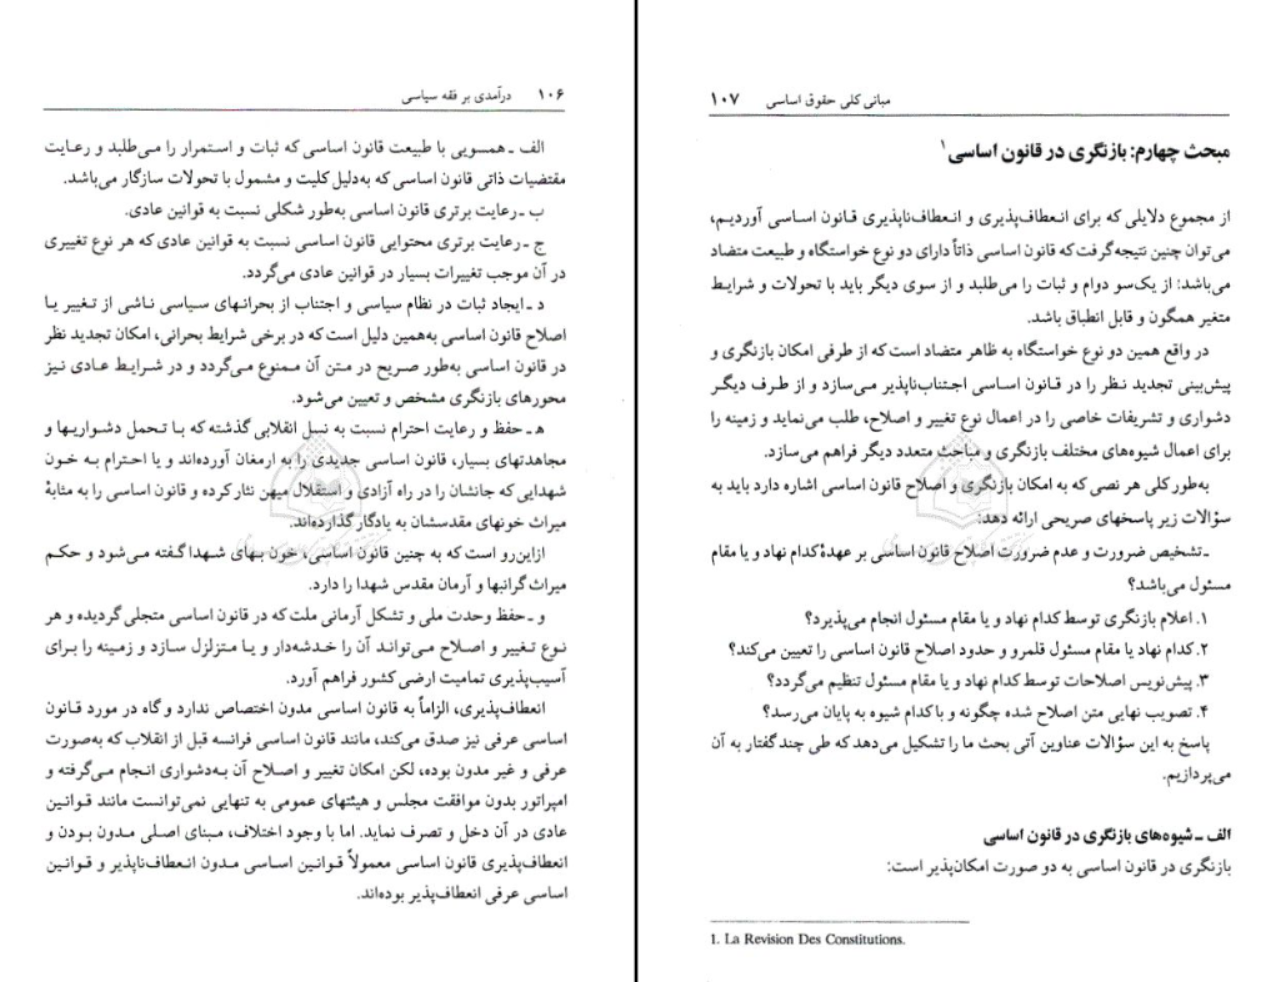 ۱۰۶ درآمدی بر فقه سیاسی
الف ـ همسویی با طبیعت قانون اساسی که ثبات و استمرار را می‌طلبد و رعایت
مقتضیات ذاتی قانون اساسی که به‌دلیل کلیت و مشمول با تحولات سازگار می‌باشد.
ب ـ رعایت برتری قانون اساسی به‌طور شکلی نسبت به قوانین عادی.
ج ـ رعایت برتری محتوایی قانون اساسی نسبت به قوانین عادی که هر نوع تغییری
در آن موجب تغییرات بسیار در قوانین عادی می‌گردد.
د ـ ایجاد ثبات در نظام سیاسی و اجتناب از بحرانهای سیاسی ناشی از تغییر یا
اصلاح قانون اساسی به‌همین دلیل است که در برخی شرایط بحرانی، امکان تجدید نظر
در قانون اساسی به‌طور صریح در متن آن ممنوع می‌گردد و در شرایط عادی نیز
محورهای بازنگری مشخص و تعیین می‌شود.
ه‍ ـ حفظ و رعایت احترام نسبت به نسل انقلابی گذشته که با تحمل دشواریها و
مجاهدتهای بسیار، قانون اساسی جدیدی را به ارمغان آورده‌اند و یا احترام به خون
شهدایی که جانشان را در راه آزادی و استقلال میهن نثار کرده و قانون اساسی را به مثابهٔ
میراث خونهای مقدسشان به یادگار گذارده‌اند.
ازاین‌رو است که به چنین قانون اساسی، خون بهای شهدا گفته می‌شود و حکم
میراث گرانبها و آرمان مقدس شهدا را دارد.
و ـ حفظ وحدت ملی و تشکل آرمانی ملت که در قانون اساسی متجلی گردیده و هر
نوع تغییر و اصلاح می‌تواند آن را خدشه‌دار و یا متزلزل سازد و زمینه را برای
آسیب‌پذیری تمامیت ارضی کشور فراهم آورد.
انعطاف‌پذیری، الزاماً به قانون اساسی مدون اختصاص ندارد و گاه در مورد قانون
اساسی عرفی نیز صدق می‌کند، مانند قانون اساسی فرانسه قبل از انقلاب که به‌صورت
عرفی و غیر مدون بوده، لکن امکان تغییر و اصلاح آن به‌دشواری انجام می‌گرفته و
امپراتور بدون موافقت مجلس و هیئتهای عمومی به تنهایی نمی‌توانست مانند قوانین
عادی در آن دخل و تصرف نماید. اما با وجود اختلاف، مبنای اصلی مدون بودن و
انعطاف‌پذیری قانون اساسی معمولاً قوانین اساسی مدون انعطاف‌ناپذیر و قوانین
اساسی عرفی انعطاف‌پذیر بوده‌اند.
مبانی کلی حقوق اساسی ۱۰۷
مبحث چهارم: بازنگری در قانون اساسی۱
از مجموع دلایلی که برای انعطاف‌پذیری و انعطاف‌ناپذیری قانون اساسی آوردیم،
می‌توان چنین نتیجه‌گرفت که قانون اساسی ذاتاً دارای دو نوع خواستگاه و طبیعت متضاد
می‌باشد: از یک‌سو دوام و ثبات را می‌طلبد و از سوی دیگر باید با تحولات و شرایط
متغیر همگون و قابل انطباق باشد.
در واقع همین دو نوع خواستگاه به ظاهر متضاد است که از طرفی امکان بازنگری و
پیش‌بینی تجدید نظر را در قانون اساسی اجتناب‌ناپذیر می‌سازد و از طرف دیگر
دشواری و تشریفات خاصی را در اعمال نوع تغییر و اصلاح، طلب می‌نماید و زمینه را
برای اعمال شیوه‌های مختلف بازنگری و مباحث متعدد دیگر فراهم می‌سازد.
به‌طور کلی هر نصی که به امکان بازنگری و اصلاح قانون اساسی اشاره دارد باید به
سؤالات زیر پاسخهای صریحی ارائه دهد:
ـ تشخیص ضرورت و عدم ضرورت اصلاح قانون اساسی بر عهدهٔ کدام نهاد و یا مقام
مسئول می‌باشد؟
۱. اعلام بازنگری توسط کدام نهاد و یا مقام مسئول انجام می‌پذیرد؟
۲. کدام نهاد یا مقام مسئول قلمرو و حدود اصلاح قانون اساسی را تعیین می‌کند؟
۳. پیش‌نویس اصلاحات توسط کدام نهاد و یا مقام مسئول تنظیم می‌گردد؟
۴. تصویب نهایی متن اصلاح شده چگونه و با کدام شیوه به پایان می‌رسد؟
پاسخ به این سؤالات عناوین آتی بحث ما را تشکیل می‌دهد که طی چند گفتار به آن
می‌پردازیم.
الف ـ شیوه‌های بازنگری در قانون اساسی
بازنگری در قانون اساسی به دو صورت امکان‌پذیر است:
1. La Revision Des Constitutions.